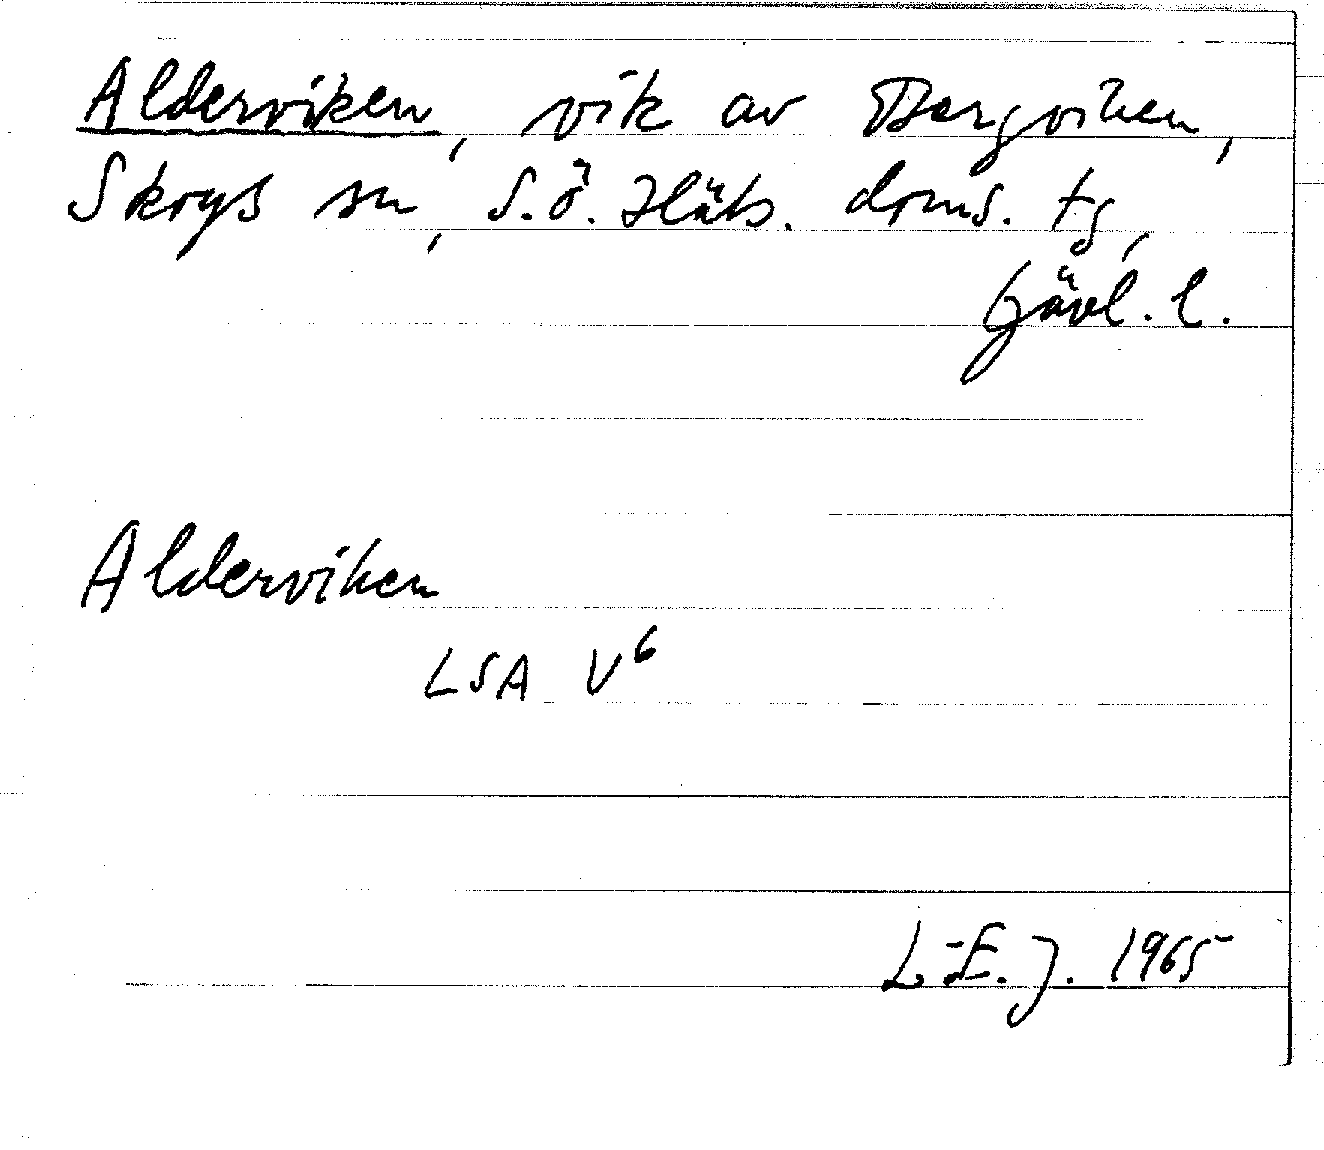 Alderviken, vik av Bergviken,
Skrys sn, S.Ö. Häls. doms. tg,
Gävl. l.
Alderviken
LSA V⁶
L-E.J. 1965